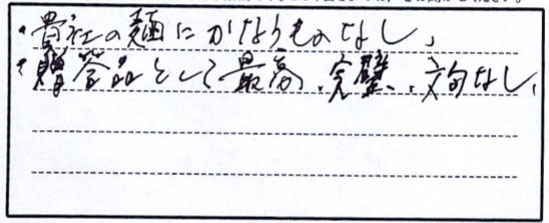 ・貴社の麺にかなうものなし、
・贈答品として最高、完璧、文句なし、